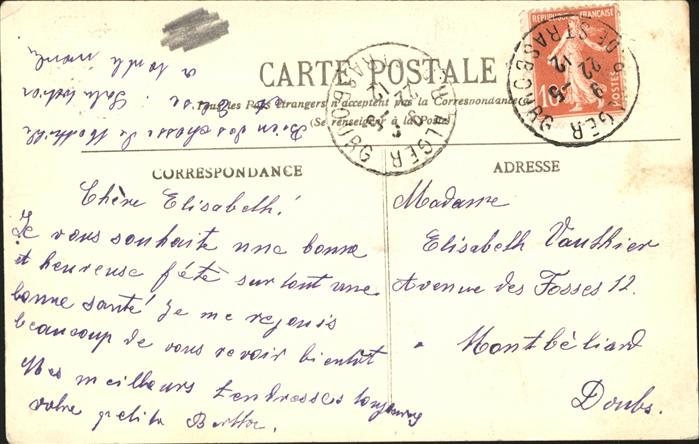 CARTE POSTALE
Tous les Pays étrangers n'acceptent pas la Correspondance
(Se renseigner à la Poste)
CORRESPONDANCE
Chère Elisabeth!
Je vous souhaite une bonne
et heureuse fête surtout une
bonne santé Je me rejouis
beaucoup de vous revoir bientôt
Mes meilleurs tendresses toujours
votre petite Berthe.
Bien des choses de Mathilde
et
a toute le monde
ADRESSE
Madame
Elisabeth Vauthier
Avenue des Fosses 12.
Montbéliard
Doubs.
REPUBLIQUE FRANÇAISE
10
POSTES
ALGER
R. DE STRASBOURG
22
12
ALGER
STRASBOURG
22
12